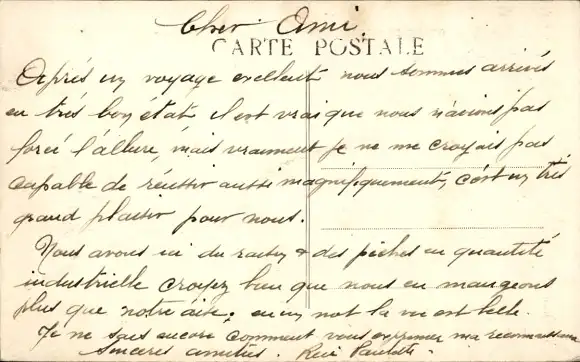 Cher Ami.
CARTE POSTALE
Après un voyage excellent nous sommes arrivés
en très bon état il est vrai que nous n'avions pas
forcé l'allure, mais vraiment je ne me croyais pas
capable de réussir aussi magnifiquement, c'est un très
grand plaisir pour nous.
Nous avons ici du raisin & des pêches en quantité
industrielle croyez bien que nous en mangeons
plus que notre aise, en un mot la vie est belle.
Je ne sais encore comment vous exprimer ma reconnaissance
sincères amitiés.